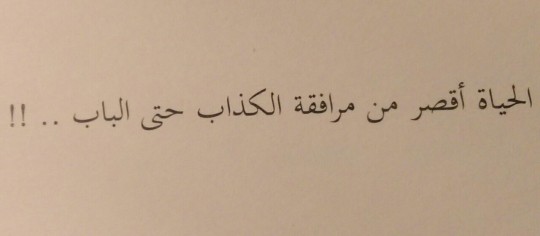 الحياة أقصر من مرافقة الكذاب حتى الباب .. !!